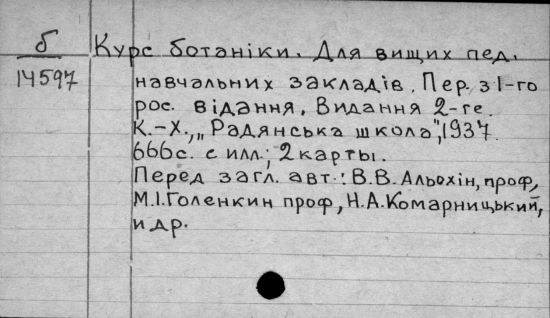 б
14597
Курс ботаніки. Для вищих пед.
навчальних закладів. Пер. з 1-го
рос. відання. Видання 2-ге.
К.-Х., „Радянська школа", 1937.
666с. с илл.; 2 карты.
Перед загл. авт.: В.В. Альохін, проф,
М.І. Голенкин проф, Н.А. Комарницький,
и др.